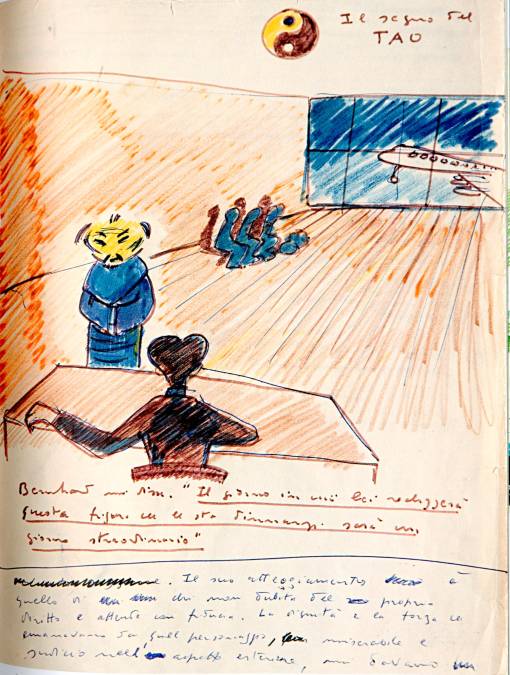 Il segno del
TAO
Bernhard mi disse. "Il giorno in cui lei redigerà
questa figura che le sta dinnanzi sarà un
giorno straordinario"
. Il suo atteggiamento è
quello di chi non dubita del proprio
diritto e attende con fiducia. La dignità e la forza che
emanavano da quel personaggio, miserabile e
sudicio nell' aspetto esteriore, mi davano un